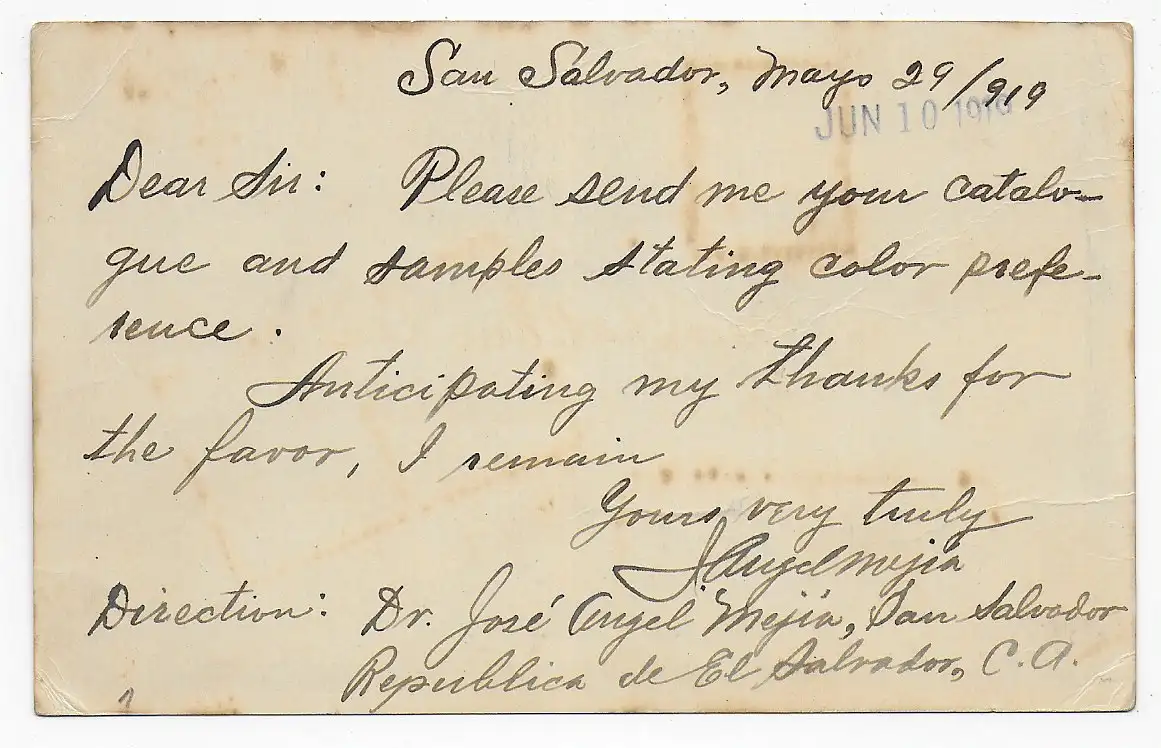 San Salvador, Mayo 29/919
JUN 10 1919
Dear Sir: Please send me your catalo-
gue and samples stating color prefe-
rence.
Anticipating my thanks for
the favor, I remain
Yours very truly
J Angel Mejía
Direction: Dr. José Angel Mejía, San Salvador
Republica de El Salvador, C. A.
1